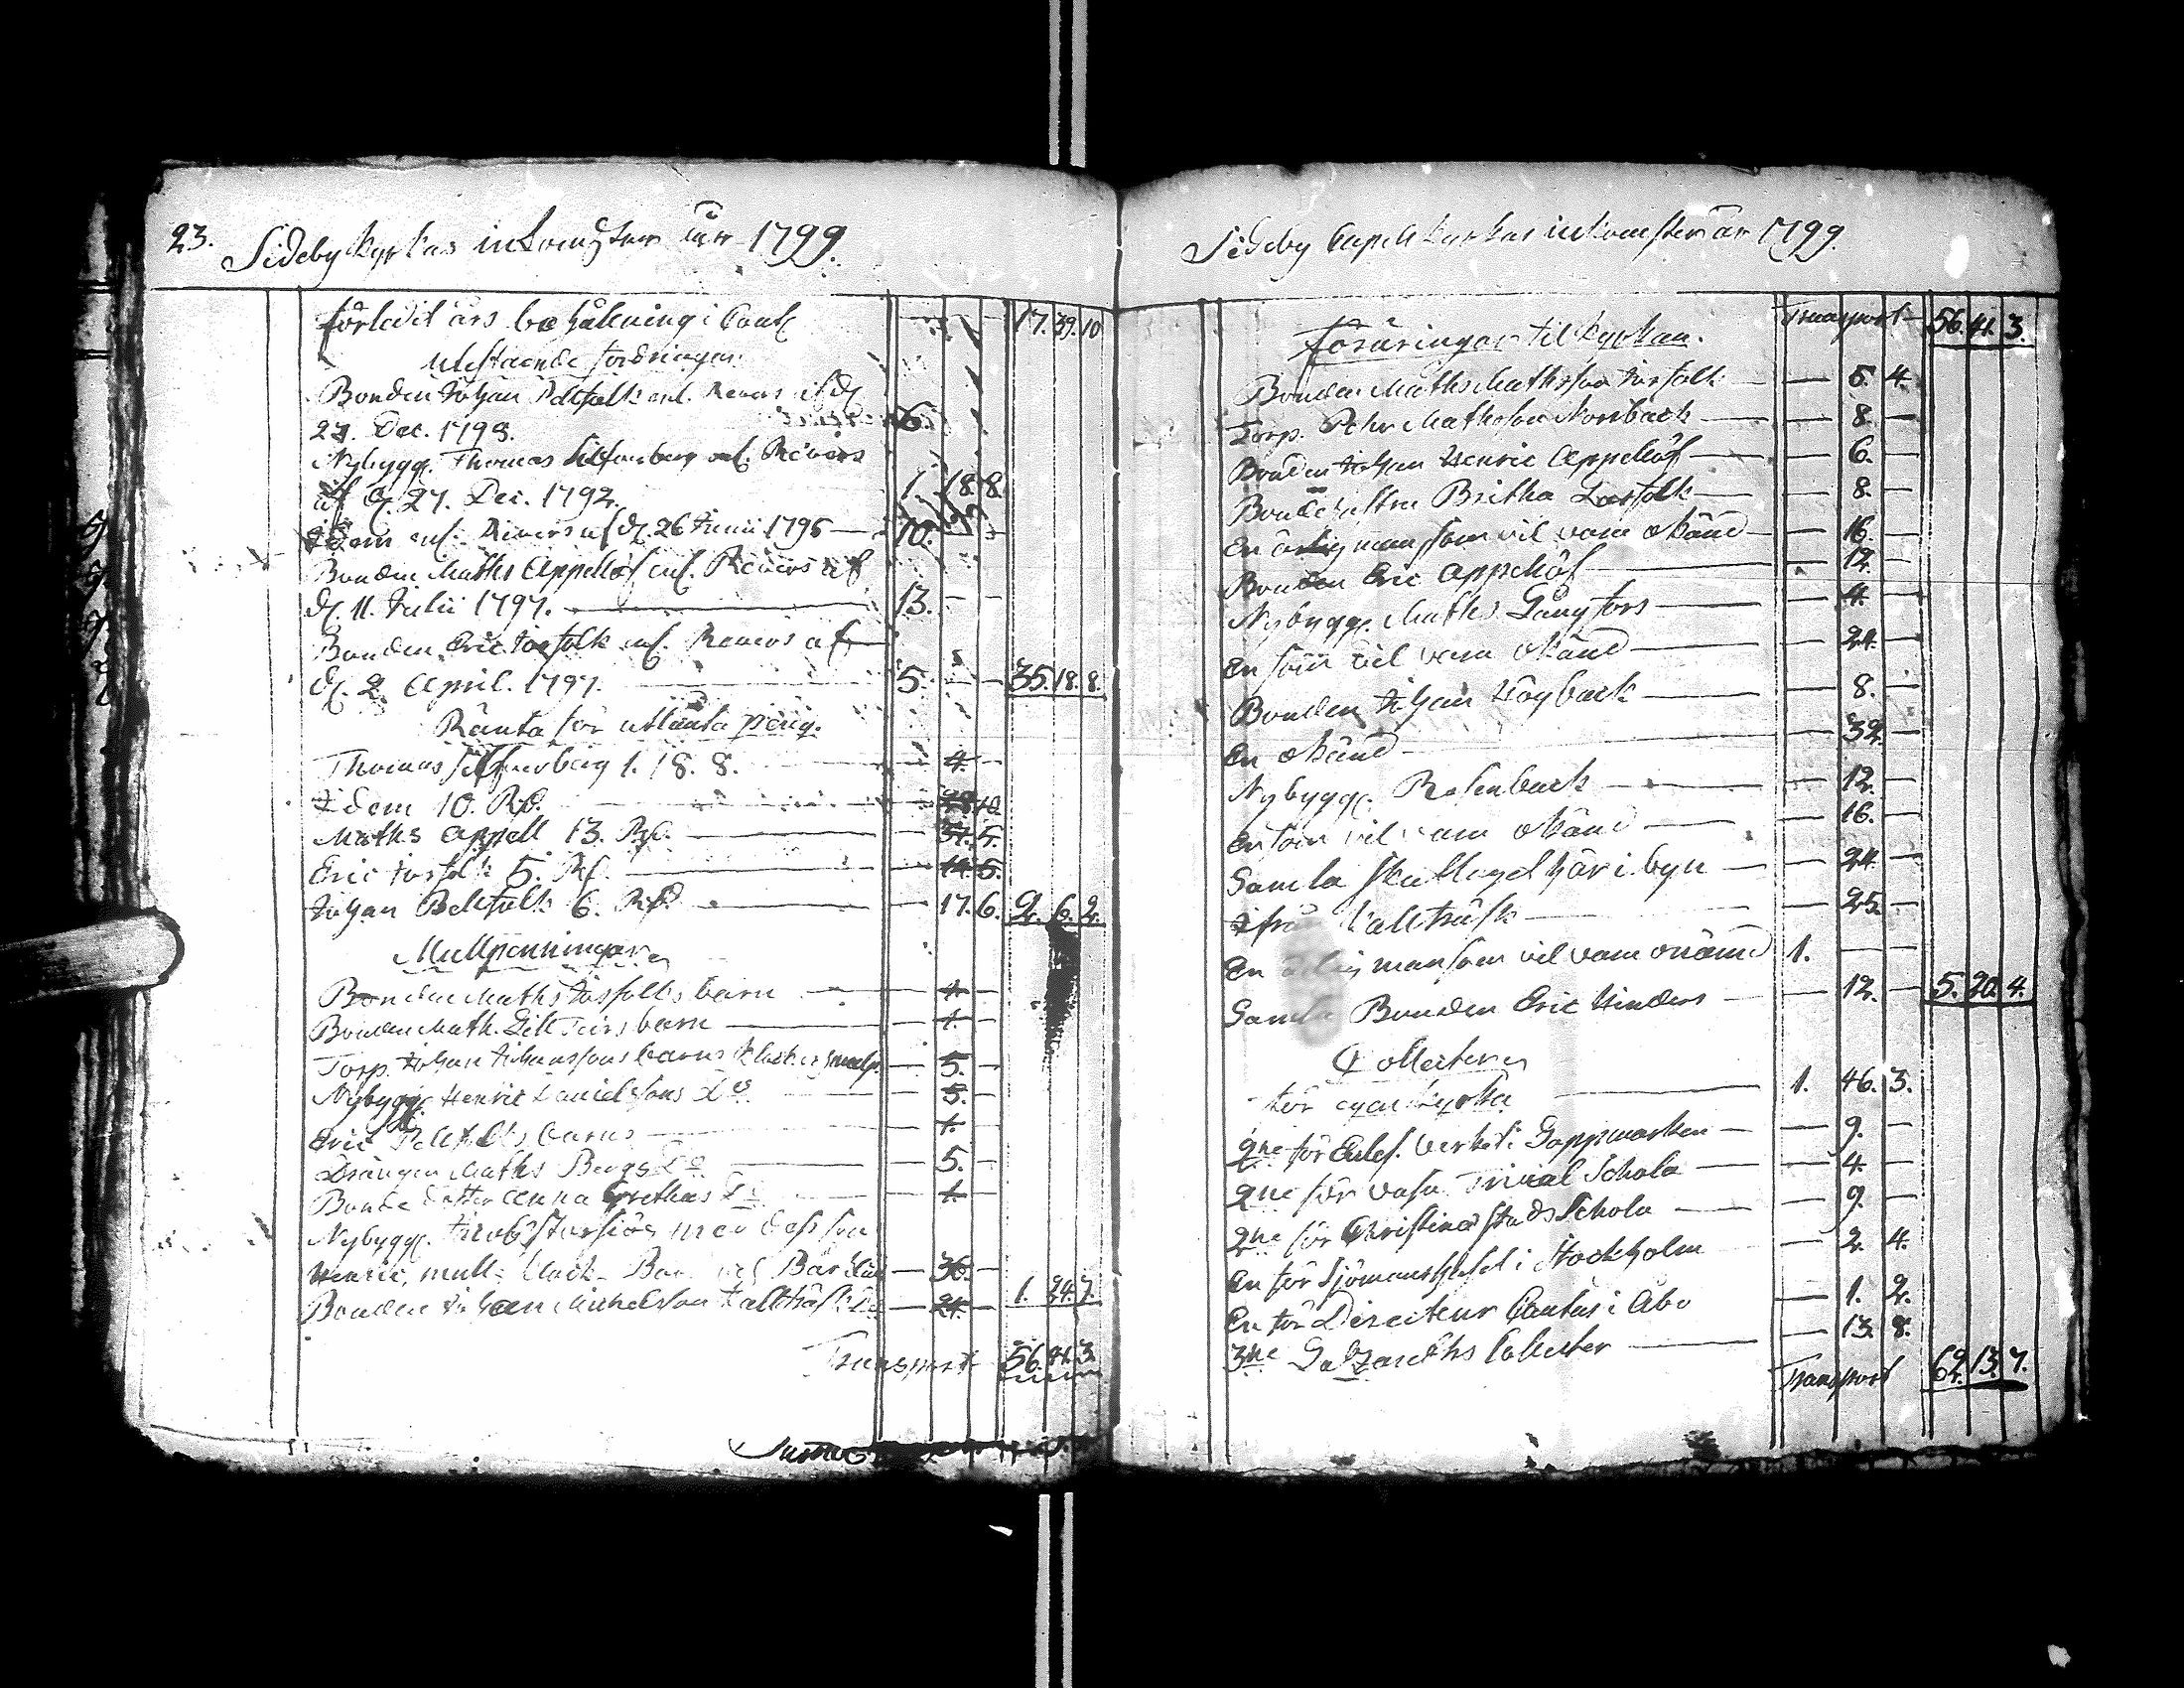 23. Sideby kyrkas inkomster år 1799.
Förledit års behållning i Cont. — 17. 39. 10
Utestående fordringar.
Bonden Johan Pellfolk enl. Revers af d.
27. Dec. 1798. 6.
Nybygg. Thomas Silfverberg enl. Revers
af d. 27. Dec. 1792. 1. 18. 8.
Idem enl. Revers af d. 26 Junii 1795 — 10. —
Bonden Maths Appellöf enl. Revers af
d. 11. Julii 1797. — 13. — —
Bonden Eric Josfolk enl. Revers af
d. 2. April. 1797. — 5. — — 35. 18. 8.
Ränta för utlånta peng.
Thomas Silfverberg 1. 18. 8. — 4. —
Idem 10. Rd. — 28. 10.
Maths Appell 13. Rd. — 37. 5.
Eric Josfolk 5. Rd. — 14. 5.
Johan Pellfolk 6. Rd. — 17. 6. 2. 6. 2.
Mullpenningar
Bonden Maths Josfolks barn — 1. —
Bonden Math. barn — 1. —
Torp. Johan Johanssons barns klock. o mullp. — 5. —
Nybygg. Henric Danielssons Do. — 5. —
Eric Pellfolks barns — 1. —
Drängen Maths Bergs Do. — 5. —
Bonde dotter Anna Grethas Do. — 1. —
Nybygg. Jacob Storsjös med dess son
Henric, mull- klock- Bår och — 36. —
Bonden Johan Michelsson Kallträsk Do — 24. — 1. 24. 7.
Transport 56. 41. 3.
Summa
Sideby Capell kyrkas inkomster år 1799.
Transport — 56. 41. 3.
Föräringar til kyrkan.
Bonden Maths Mathsson Josfolk — 5. 4.
Torp. Pehr Mathsson Norrback — 8. —
Bonden Johan Henric Appellöf — 6. —
Bondehustru Britha Josfolk — 8. —
En ärlig man som vil vara okänd — 16. —
Bonden Eric Appellöf — 12. —
Nybygg. Maths Långfors — 4. —
En som vil vara okänd — 24. —
Bonden Johan Högback — 8. —
En okänd — 32. —
Nybygg. Rosenback — 12. —
En som vil vara okänd — 16. —
Samla här i byn — 24. —
Ifrån Kallträsk — 25. —
En ärlig man som vil vara onämnd 1. — —
Samla Bonden Eric Hinders — 12. — 5. 20. 4.
Collecter
För egen kyrka — 1. 46. 3.
2ne för — 9. —
2ne för Vasa Trivial Schola — 4. —
2ne för Christinæ stads Schola — 9. —
En för Sjömanshuset i Stockholm — 2. 4.
En för Directeur i Åbo — 1. 2.
3ne Lazareths Collecter — 13. 8.
Transport 62. 13. 7.